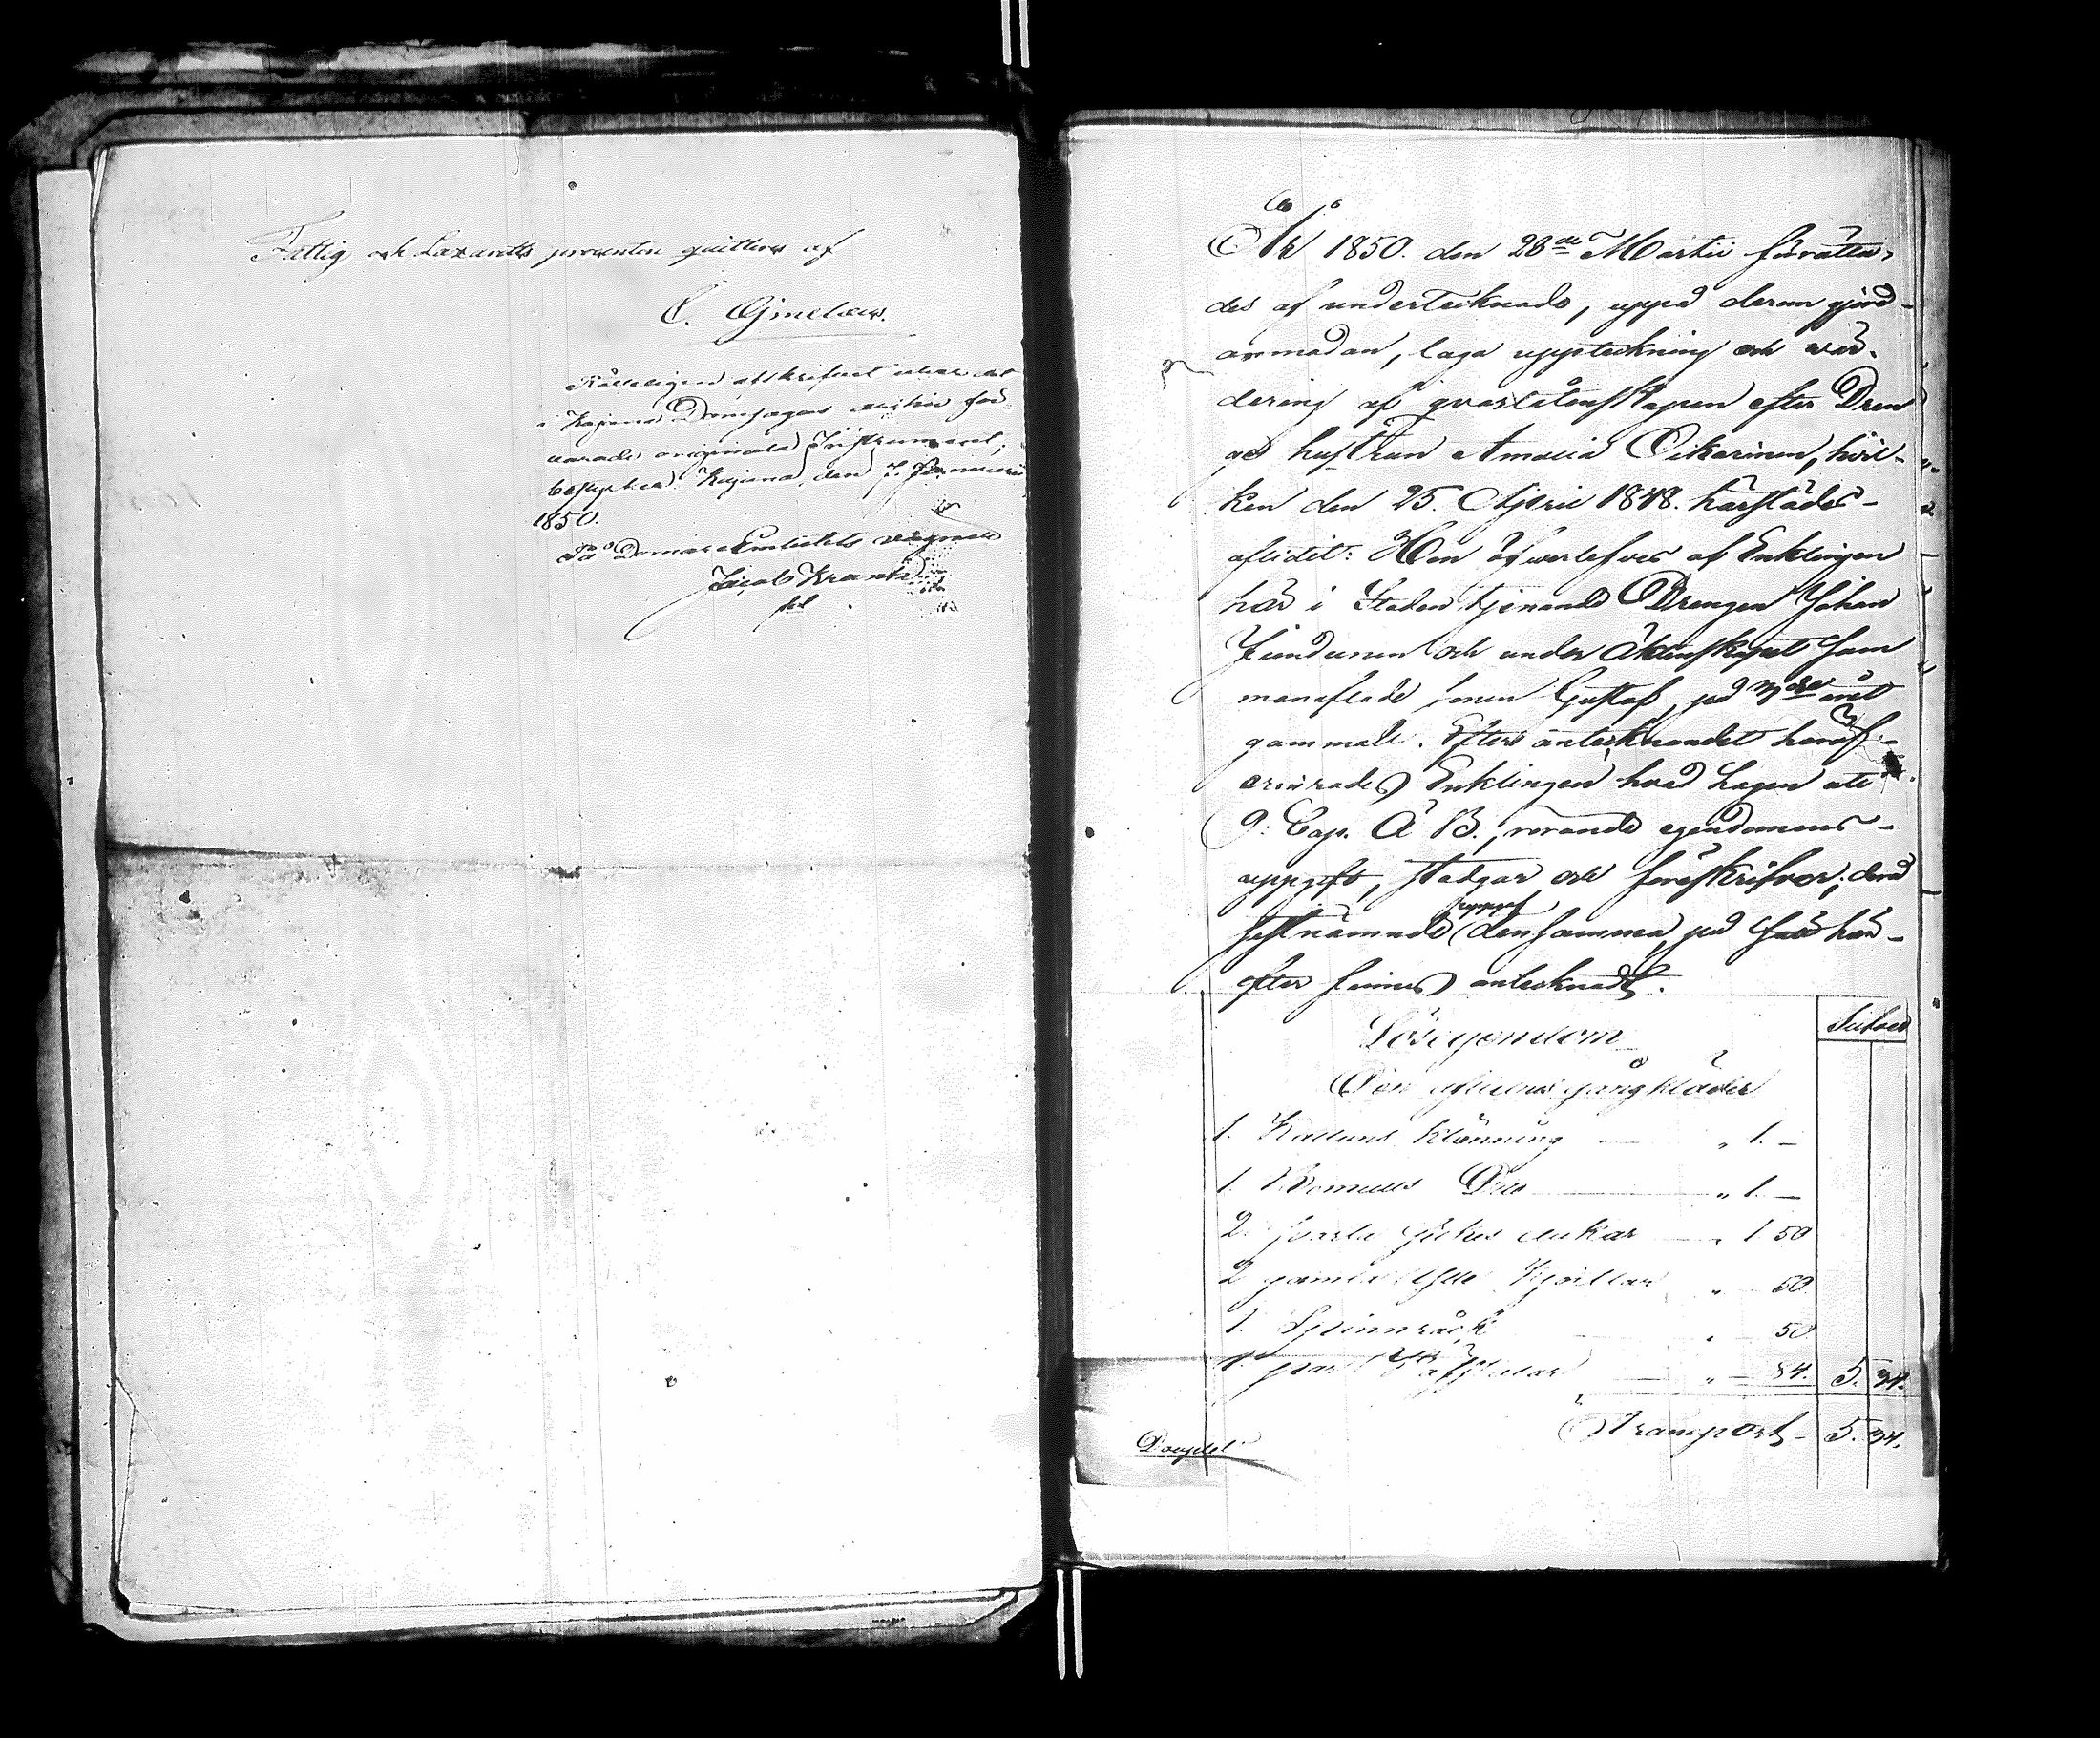 Fattig och Lazaretts procenten quitteras af
C. Gjmelæus.
Rätteligen afskrifvet ur det
i Kajana Domsagas archiv för
varade originala Instrumentet,
betygar. Kajana, den 7. Januarii
1850.
På Domare Embetets vägnar
Jacob Krank
År 1850. den 28de Martii förrätta-
des af undertecknade, uppå derom gjord
anmodan, laga uppteckning och vär-
dering af qvarlåtenskapen efter Dren
ge hustrun Amalia Oikarinen, hvil-
ken den 25. April 1848. härstädes
aflidit: Hon öfverlefves af Enklingen
här i Staden tjenande Drengen Johan
och under äktenskapet sam
manaflade sonen Gustaf, på året
gammall. Efter antecknandet häraf
erinrades Enklingen hvad Lagen uti
9: Cap. Ä B., rörande egendomens
uppgift, stadgar och föreskrifver; den
sistnämnde uppgaf densamma, på sätt här-
efter finnes antecknadt.
Silfver
Lösegendom
Den aflidnas gångkläder
1. Kattuns klänning — „ 1. —
1. Bomulls Dito — „ 1. —
2. svarta silkes dukar — „ 1. 50
2 gamla Kjortlar „ 50.
1. Spinnråck — „ 50.
1. par — „ — 84. 5. 34.
Transport 5. 34.